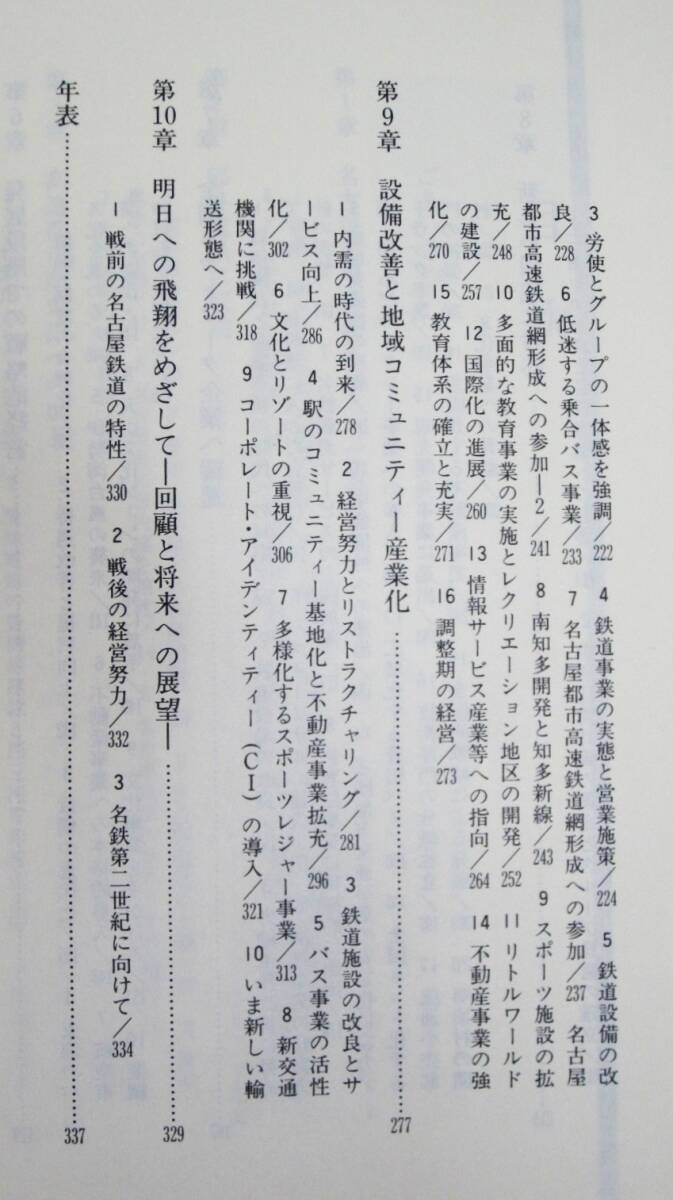 3 労使とグループの一体感を強調/222 4 鉄道事業の実態と営業施策/224 5 鉄道設備の改
良/228 6 低迷する乗合バス事業/233 7 名古屋都市高速鉄道網形成への参加/237 名古屋
都市高速鉄道網形成への参加—2/241 8 南知多開発と知多新線/243 9 スポーツ施設の拡
充/248 10 多面的な教育事業の実施とレクリエーション地区の開発/252 11 リトルワールド
の建設/257 12 国際化の進展/260 13 情報サービス産業等への指向/264 14 不動産事業の強
化/270 15 教育体系の確立と充実/271 16 調整期の経営/273
第9章 設備改善と地域コミュニティー産業化 …………277
1 内需の時代の到来/278 2 経営努力とリストラクチャリング/281 3 鉄道施設の改良とサ
ービス向上/286 4 駅のコミュニティー基地化と不動産事業拡充/296 5 バス事業の活性
化/302 6 文化とリゾートの重視/306 7 多様化するスポーツレジャー事業/313 8 新交通
機関に挑戦/318 9 コーポレート・アイデンティティー(CI)の導入/321 10 いま新しい輸
送形態へ/323
第10章 明日への飛翔をめざして—回顧と将来への展望— …………329
1 戦前の名古屋鉄道の特性/330 2 戦後の経営努力/332 3 名鉄第二世紀に向けて/334
年表…………337